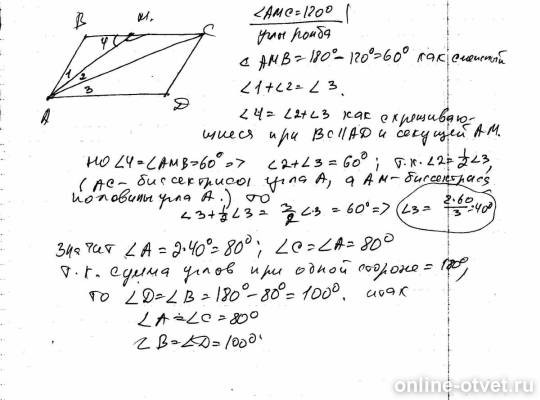 ∠AMC=120°
углы ромба
B M. C
4
1 2
3
A D
∠AMB=180°-120°=60° как смежный
∠1+∠2=∠3.
∠4=∠2+∠3 как скрещиваю-
щиеся при BC||AD и секущей AM.
Но ∠4=∠AMB=60° => ∠2+∠3=60°; т.к. ∠2=½∠3,
(AC-биссектриса угла A, а AM-биссектриса
половины угла A.) то
∠3+½∠3=3/2∠3=60° => ∠3=2·60/3=40°
Значит ∠A=2·40°=80°; ∠C=∠A=80°
т.к. сумма углов при одной стороне=180°,
то ∠D=∠B=180°-80°=100°. итак
∠A=∠C=80°
∠B=∠D=100°
online-otvet.ru